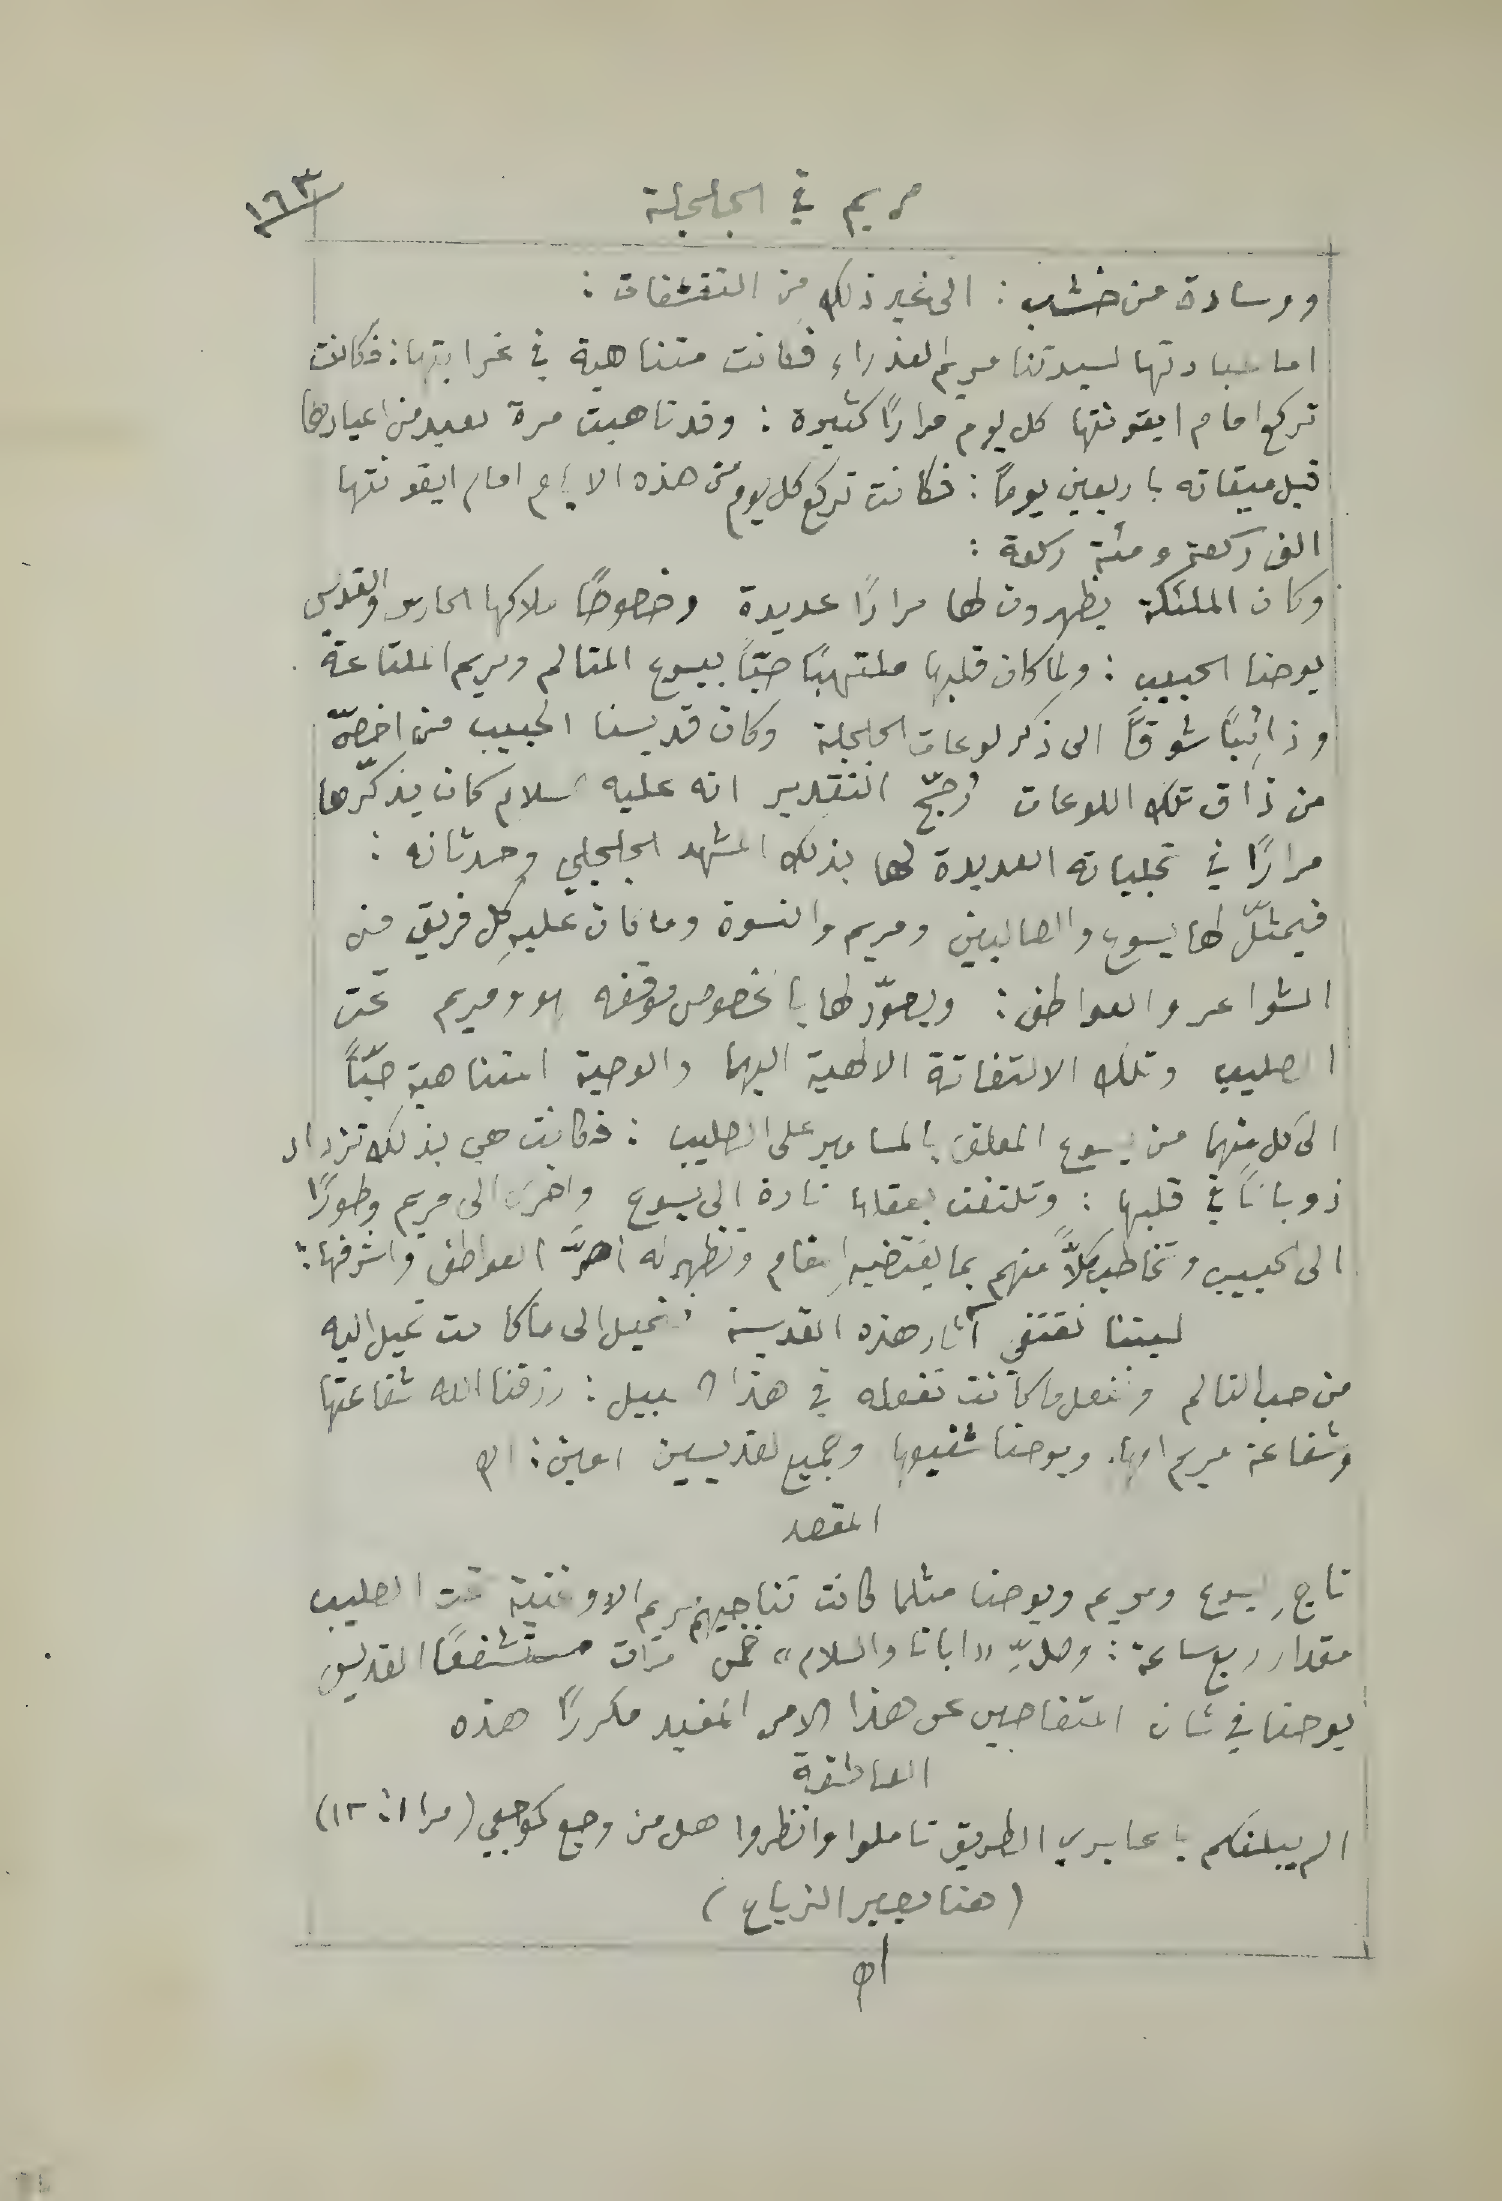 مريم في الجلجلة
١٦٣
ووسادة من خشب : الى غير ذلك من التقشفات :
اما عبادتها لسيدتنا مريم العذراء فكانت متناهية في غرابتها : فكانت
تركع امام ايقونتها كل يوم مرارًا كثيرة : وقد تاهبت مرة لعيد من اعيادها
قبل ميقاته باربعين يومًا : فكانت تركع كل يوم من هذه الايام امام ايقونتها
الف ركعة ومئة ركعة :
وكان الملئكة يظهرون لها مرارًا عديدة وخصوصًا ملاكها الحارس والقديس
يوحنا الحبيب : ولما كان قلبها ملتهبًا حبًّا بيسوع المتالم ومريم الملتاعة
وذائبًا شوقًا الى ذكر لوعات الجلجلة وكان قديسنا الحبيب من اخصّ
من ذاق تلك اللوعات رُجّح التقدير انه عليه السلام كان يذكّرها
مرارًا في تجلياته العديدة لها بذلك المشهد الجلجلي وحدثانه :
فيمثّل لها يسوع والصالبين ومريم والنسوة وما كان عليهِ كل فريق من
الشواعر والعواطف : ويصوّر لها بالخصوص موقفه هو ومريم تحت
الصليب وتلك الالتفاتة الالهية اليهما والوصية المتناهية حبًّا
الى كل منهما من يسوع المعلق بالمسامير على الصليب : فكانت هي بذلك تزداد
ذوبانًا في قلبها : وتلتفت بعقلها تارة الى يسوع واخرى الى مريم وطورًا
الى الحبيب وتخاطب كلاًّ منهم بما يقتضيهِ المقام وتظهر له احرَّ العواطف واشرفها :
ليتنا نقتفي آثار هذه القديسة فنميل الى ما كانت تميل اليه
من حب التالم ونفعل ما كانت تفعله في هذا السبيل : رزقنا الله شفاعتها
وشفاعة مريم امها ويوحنا شفيعها وجميع القديسين امين : اﻫ
المقصد
ناجِ يسوع ومريم ويوحنا مثلما كانت تناجيهم مريم الاوغنية تحت الصليب
مقدار ربع ساعة : وصلِّ «ابانا والسلام» خمس مرات مستشفعًا القديس
يوحنا في شان المتغاضين عن هذا الامر المفيد مكررًا هذه
العاطفة
الم يبلغكم يا عابري الطريق تاملوا وانظروا هل من وجع كوجعي (مرا ١ : ١٢)
(هنا يصير الزياح)
اﻫ